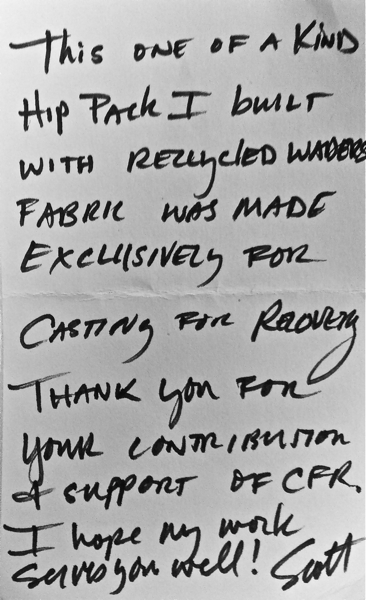 This ONE OF A KIND
Hip PACK I built
WITH RECYCLED WADERS
FABRIC WAS MADE
EXCLUSIVELY FOR
CASTING FOR RECOVERY
THANK you FOR
YOUR CONTRIBUTION
& SUPPORT OF CFR.
I hope my work
serves you well! Scott